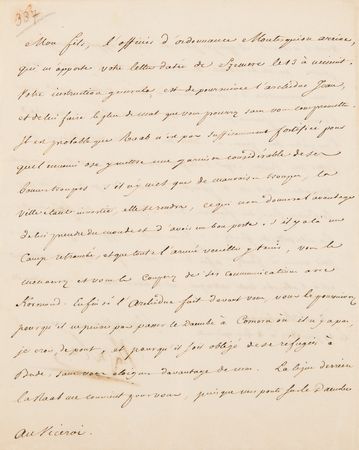 337
Mon fils, l'officier d'ordonnance Montesquiou arrive,
qui m'apporte votre lettre datée de le 13 à
Votre instruction générale, est de poursuivre l'archiduc Jean,
et de lui faire le plus de mal que vous pourrez sans vous compromettre.
Il est probable que Raab n'est pas suffisamment fortifié pour
que l'ennemi ose y mettre une garnison considérable de ses
bonnes troupes. s'il n'y met que de mauvaises troupes, la
ville étant investie, elle se rendra, ce qui nous donnera l'avantage
de lui prendre du monde et d'avoir un bon poste. s'il y a là un
Camp retranché, et que toute l'armée veuille y tenir, vous le
et vous le couperez de ses communications avec
Kormond. Enfin si l'Archiduc fuit devant vous, vous le poursuivrez
pour qu'il ne puisse pas passer le Danube à Comorn où il n'y a pas
je crois, de pont, et pour qu'il soit obligé de se réfugier à
Bude, sans vous éloigner davantage de moi. La ligne derrière
la Raab me convient pour vous, puisque mes ponts sur le Danube
Au Viceroi.